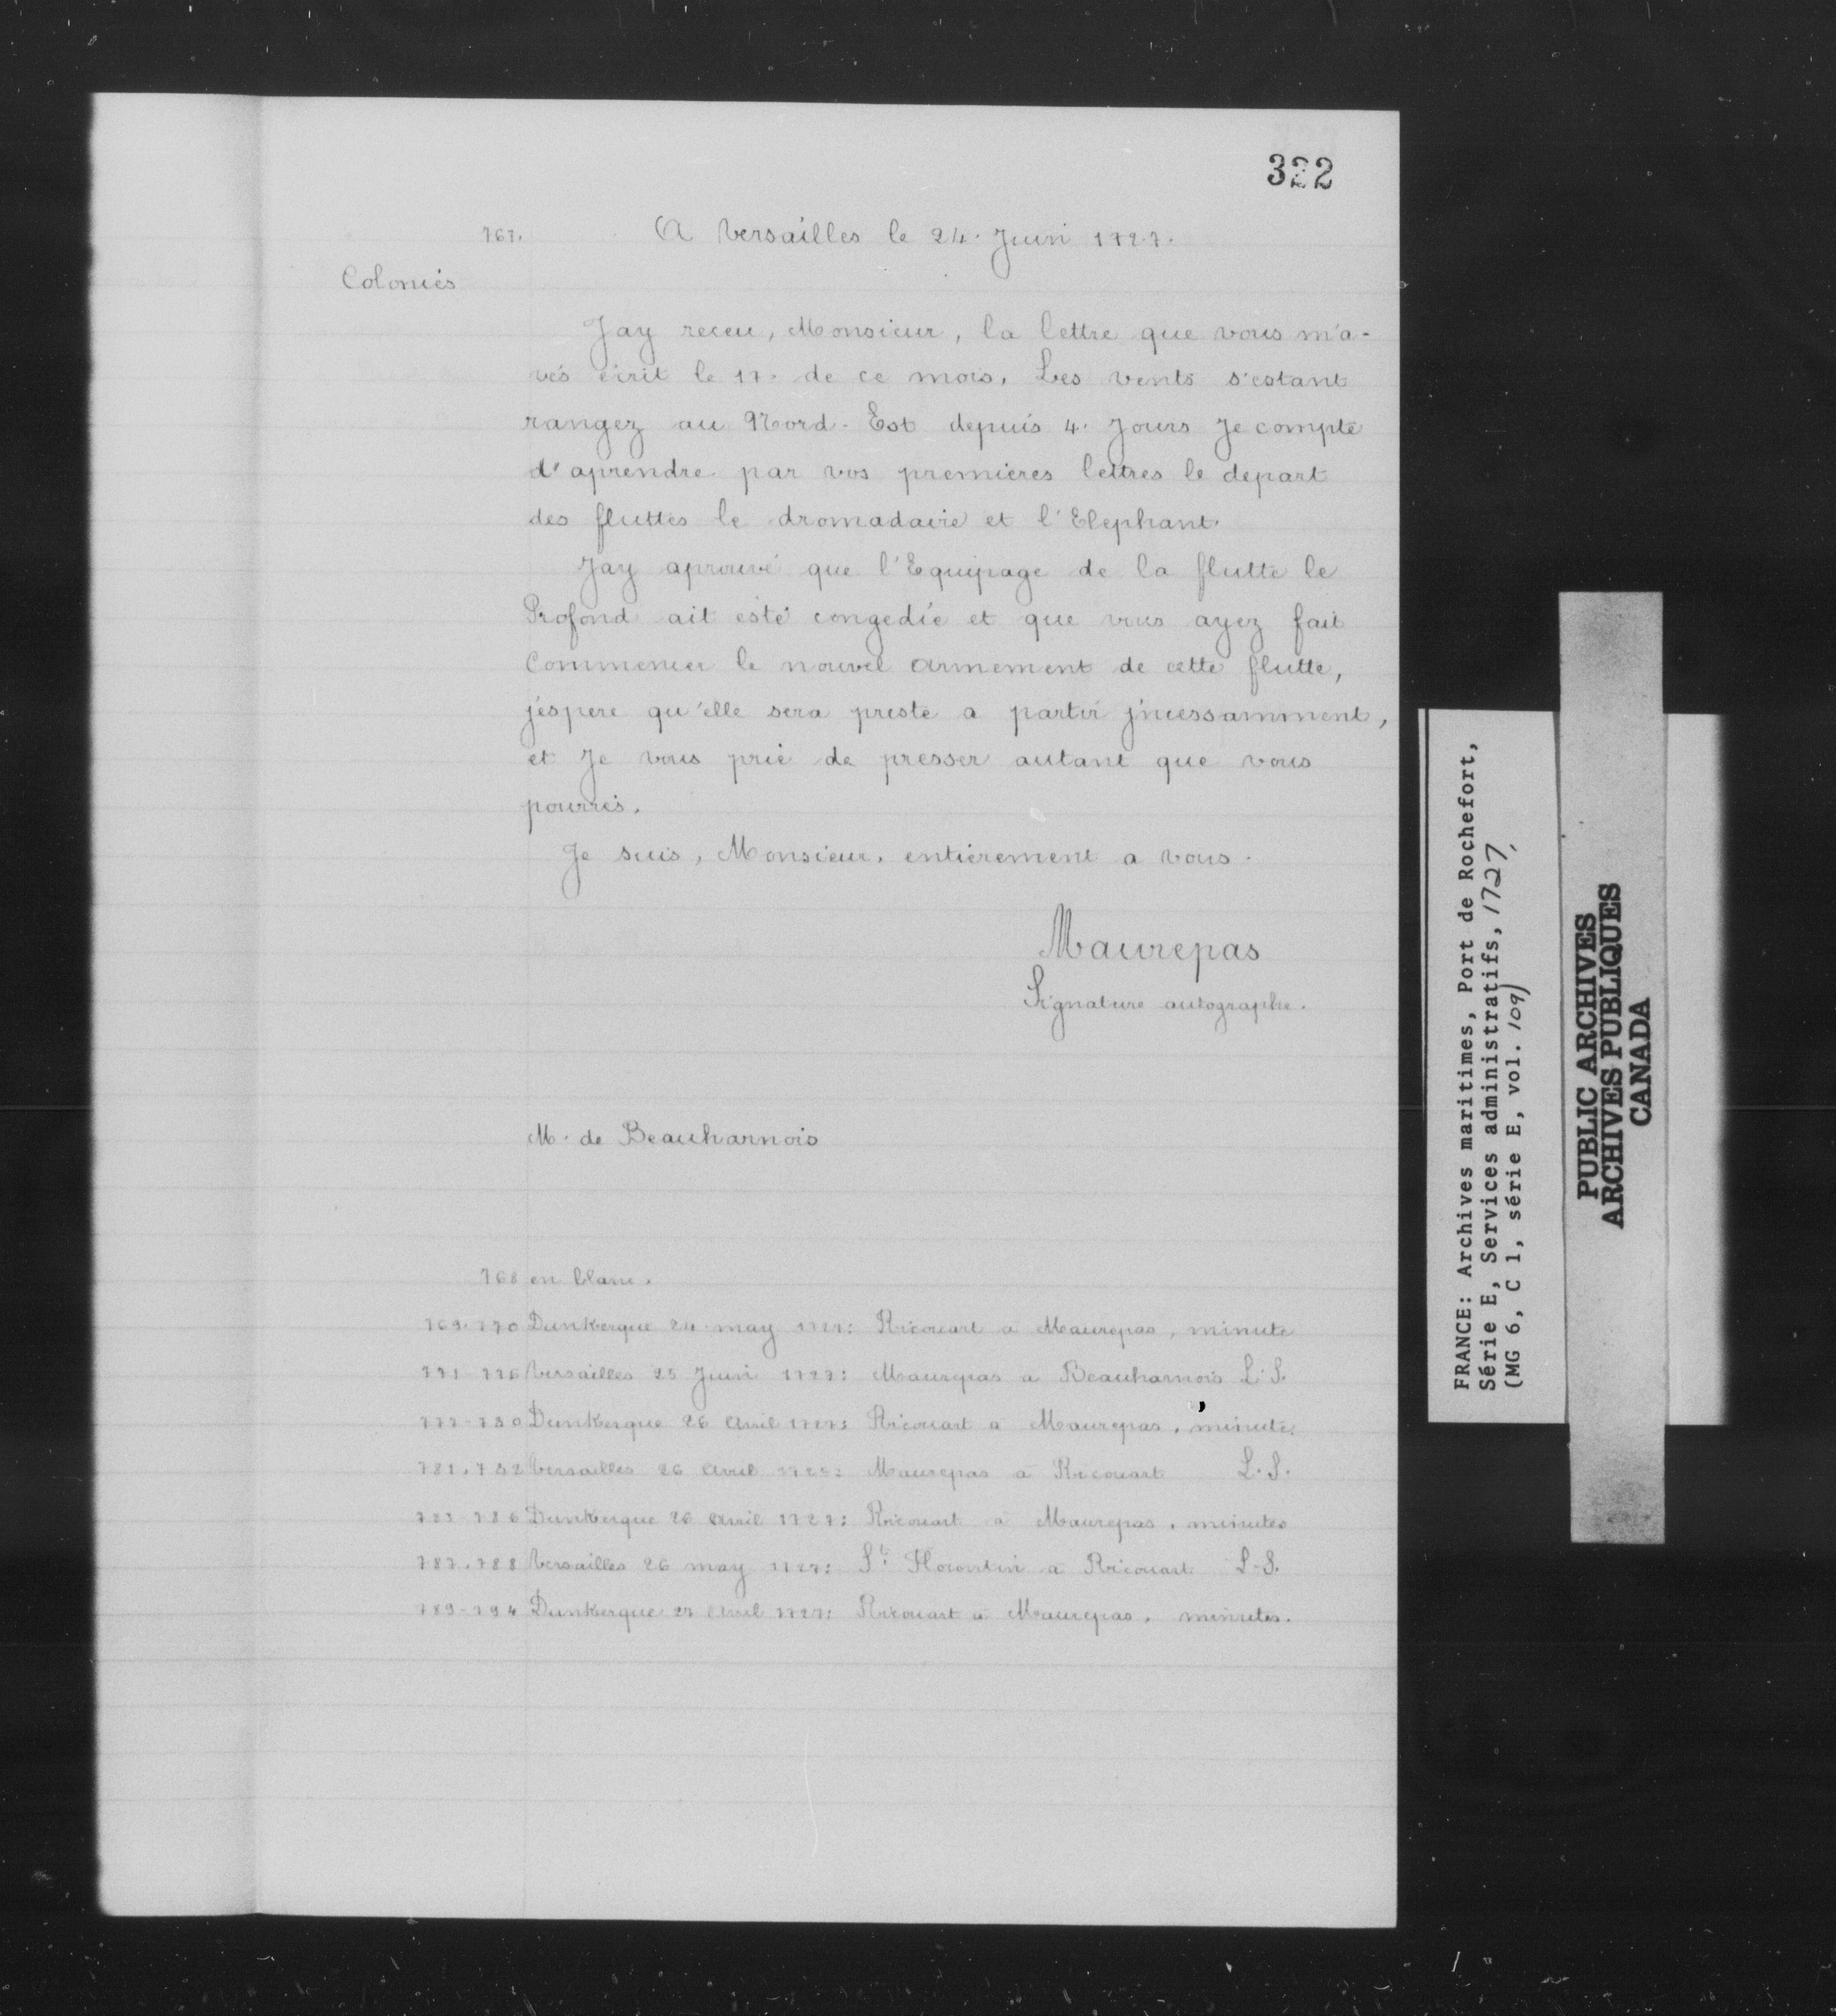 322
767.
A Versailles le 24. Juin 1727.
Colonies
Jay receu, Monsieur, la lettre que vous m'a-
vés écrit le 17. de ce mois. Les vents s'estant
rangez au Nord-Est depuis 4. Jours Je compte
d'aprendre par vos premieres lettres le depart
des fluttes le dromadaire et l'Elephant.
Jay aprouvé que l'Equipage de la flutte le
Profond ait esté congedié et que vous ayez fait
Commencer le nouvel armement de cette flutte,
j'espere qu'elle sera preste a partir jncessamment,
et Je vous prie de presser autant que vous
pourrés.
Je suis, Monsieur, entierement a vous.
Maurepas
Signature autographe.
M. de Beauharnois
768 en blanc.
769-770 Dunkerque 24 may 1727: Ricouart a Maurepas, minute
771-776 Versailles 25 Juin 1727: Maurepas a Beauharnois L.S.
777-780 Dunkerque 26 Avril 1727: Ricouart a Maurepas, minute.
781.782 Versailles 26 Avril Maurepas a Ricouart L.S.
783-786 Dunkerque 26 Avril 1727: Ricouart a Maurepas, minutes
787.788 Versailles 26 may 1727: St Florentin a Ricouart L.S.
789-794 Dunkerque 27 Avril 1727: Ricouart a Maurepas, minutes.
FRANCE: Archives maritimes, Port de Rochefort,
Série E, Services administratifs, 1727,
(MG 6, C 1, série E, vol. 109)
PUBLIC ARCHIVES
ARCHIVES PUBLIQUES
CANADA